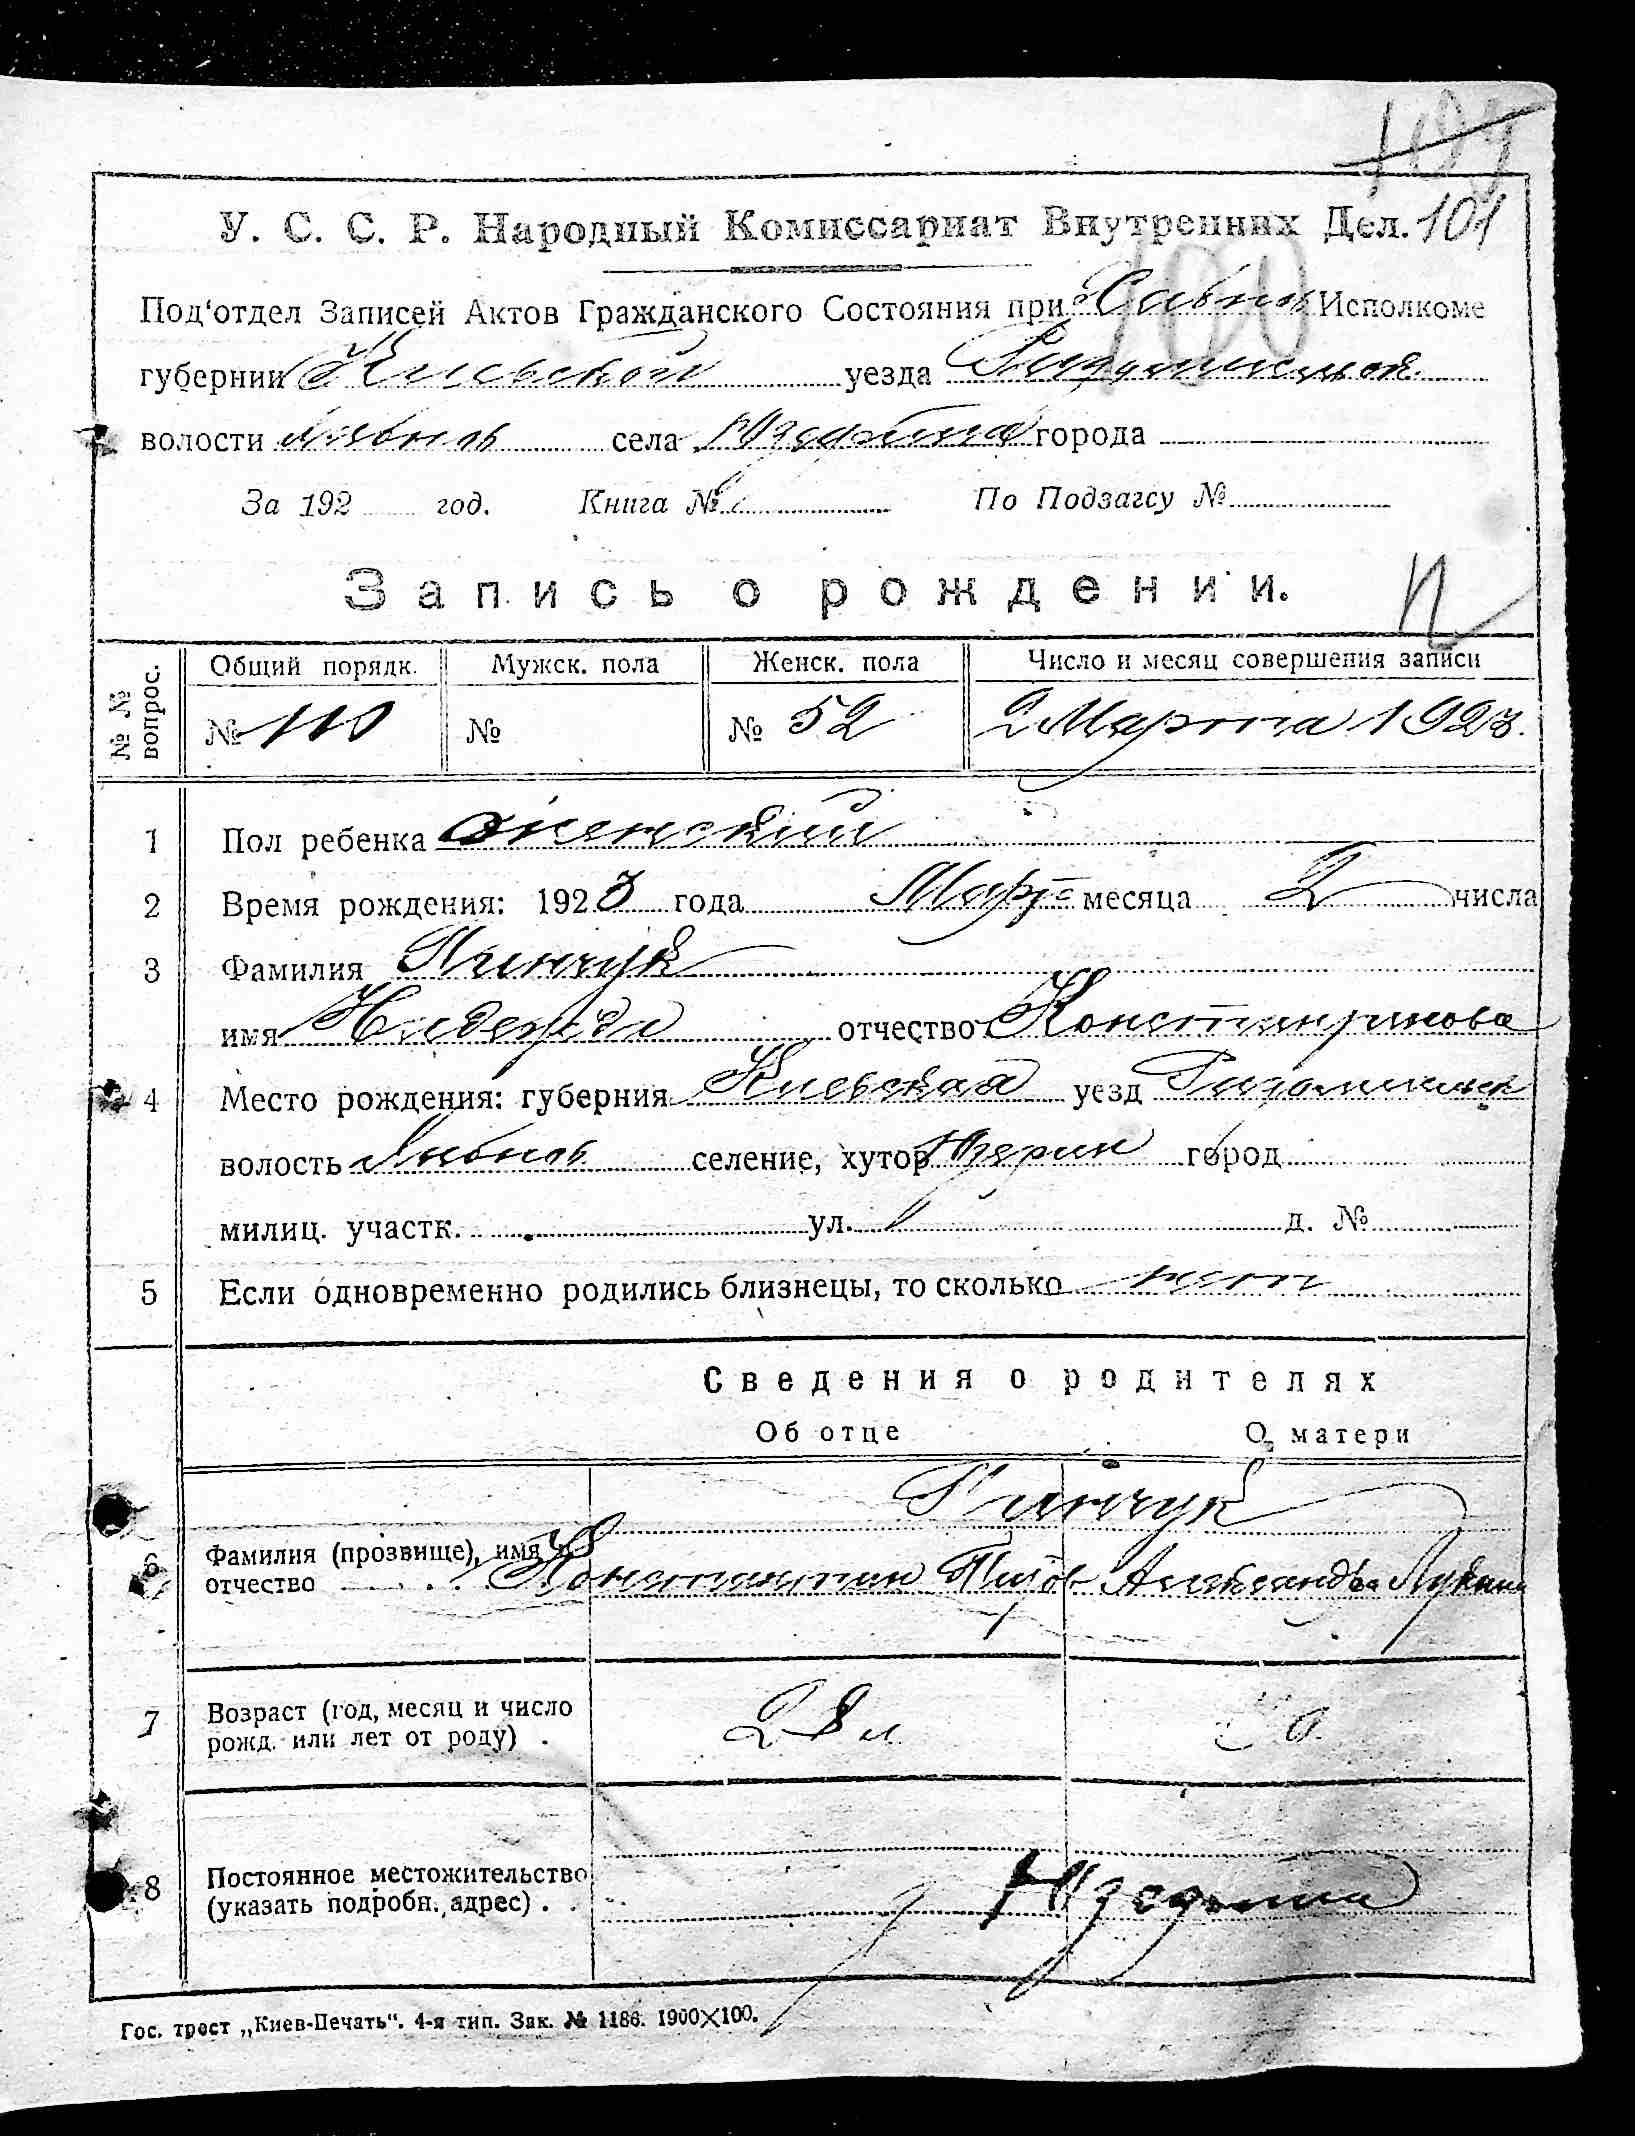 104
У. С. С. Р. Народный Комиссариат Внутренних Дел. 101
100
Под'отдел Записей Актов Гражданского Состояния при Исполкоме
губернии Киевской уезда
волости села города
За 192 год. Книга № По Подзагсу №
Запись о рождении.
№ № вопрос. Общий порядк. Мужск. пола Женск. пола Число и месяц совершения записи
№ 110 № № 52 2 Марта 1923.
1 Пол ребенка женский
2 Время рождения: 1923 года Март месяца 2 числа
3 Фамилия Пинчук
имя Надежда отчество Константинова
4 Место рождения: губерния Киевская уезд
волость селение, хутор город
милиц. участк. ул. д. №
5 Если одновременно родились близнецы, то сколько нет
Сведения о родителях
Об отце О матери
Пинчук
6 Фамилия (прозвище), имя и
отчество Константин Александра
7 Возраст (год, месяц и число
рожд. или лет от роду) . 28 л
8 Постоянное местожительство
(указать подробн. адрес) . .
Гос. трест „Киев-Печать“. 4-я тип. Зак. № 1186. 1900×100.